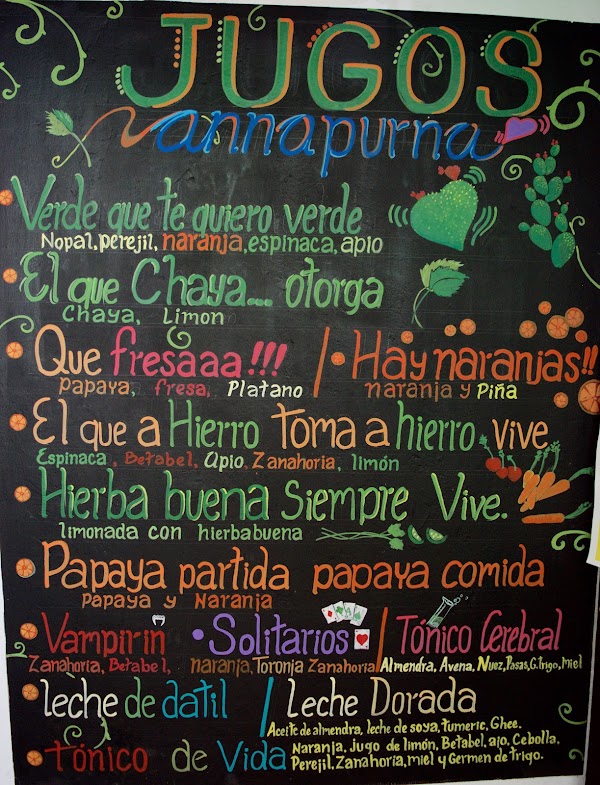 JUGOS
annapurna
Verde que te quiero verde
Nopal, perejil, naranja, espinaca, apio
El que Chaya... otorga
Chaya, Limon
Que fresaaa!!! / Hay naranjas!!
papaya, fresa, Platano naranja y Piña
El que a Hierro Toma a hierro vive
Espinaca, Betabel, Apio, Zanahoria, limón
Hierba buena Siempre Vive.
limonada con hierbabuena
Papaya partida papaya comida
Papaya y Naranja
Vampirin • Solitarios / Tónico Cerebral
Zanahoria, Betabel, naranja, Toronja Zanahoria Almendra, Avena, Nuez, Pasas, G.trigo, miel
leche de datil / Leche Dorada
Aceite de almendra, leche de soya, tumeric, Ghee.
Tónico de Vida Naranja, Jugo de limón, Betabel, ajo, Cebolla,
Perejil, Zanahoria, miel y Germen de trigo.